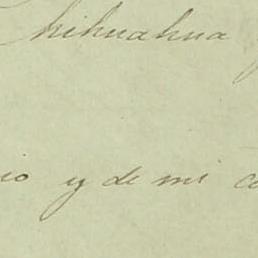 Chihuahua
y de mi